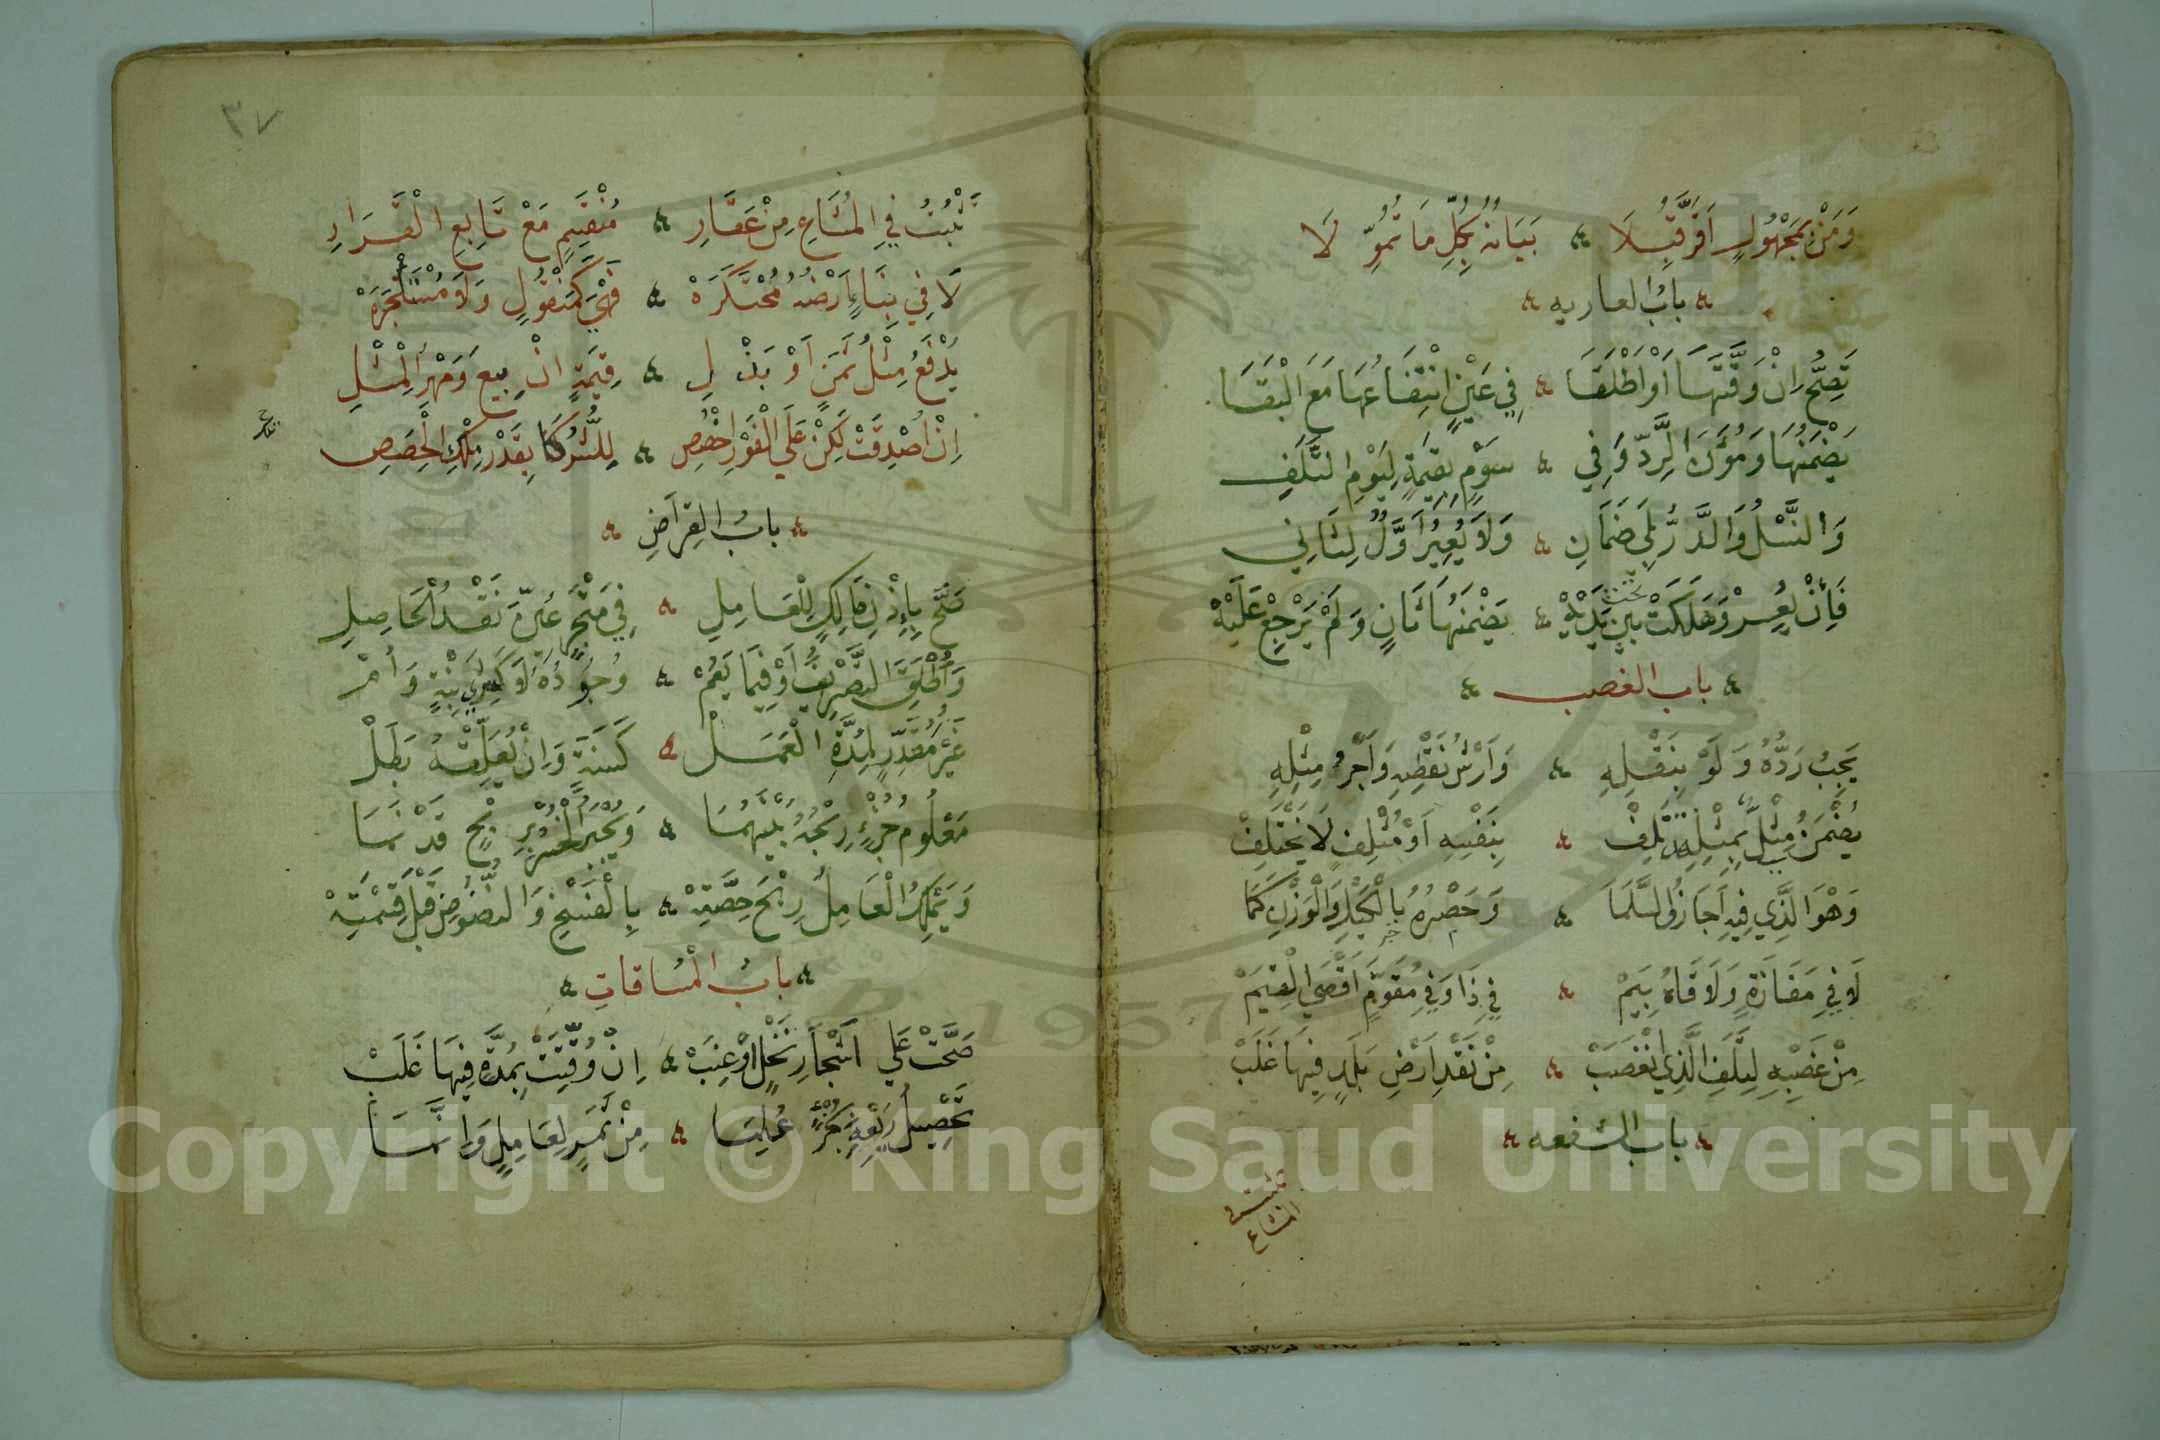 وَمَنْ بِمَجْهُولٍ اَقَرَّ قُبِلَا ۞ بَيَانُهُ بِكُلِّ مَا تُمُوِّلَا
بابُ العاريه
تَصِحُّ اِنْ وَقَّتَهَا اَوْ اَطْلَقَا ۞ فِي عَيْنٍ انْتِفَاعُهَا مَعَ الْبَقَا
يَضْمَنُهَا وَمُؤَنَ الرَّدِّ وَفِي ۞ سَوْمٍ بِقِيمَةٍ لِيَوْمِ التَّلَفِ
وَالنَّسْلُ وَالدَّرُّ بِلَا ضَمَانِ ۞ وَلَا يُعِيرُ اَوَّلٌ لِثَانِي
فَاِنْ يُعِرْ وَهَلَكَتْ تحت يَدَيْهْ ۞ يَضْمَنُهَا ثَانٍ وَلَمْ يَرْجِعْ عَلَيْهْ
باب الغصب
يَجِبُ رَدُّهُ وَلَوْ بِنَقْلِهِ ۞ وَاَرْشُ نَقْصِهِ وَاَجْرُ مِثْلِهِ
يُضْمَنُ مِثْلِيٌّ بِمِثْلِهِ تَلِفْ ۞ بِنَفْسِهِ اَوْ مُتْلِفٍ لَا يَخْتَلِفْ
وَهْوَ الَّذِي فِيهِ اَجَازُوا السَّلَمَا ۞ وَحَصْرُهُ بِالْكَيْلِ وَالْوَزْنِ كَمَا
لَا فِي مَفَازَةٍ وَلَاقَاهُ بِيَمْ ۞ فِي ذَا وَفِي مُقَوَّمٍ اَقْصَى الْقِيَمْ
مِنْ غَصْبِهِ لِتَلَفِ الَّذِي انْغَصَبْ ۞ مِنْ نَقْدِ اَرْضِ بَلَدٍ فِيهَا غَلَبْ
باب الشفعه
تثبت في
المشاع
٣٧
تَثْبُتُ فِي الْمُشَاعِ مِنْ عَقَارِ ۞ مُنْقَسِمٍ مَعْ تَابِعِ الْقَرَارِ
لَا فِي بِنَاءٍ اَرْضُهُ مُحْتَكَرَهْ ۞ فَهْيَ كَمَنْقُولٍ وَلَا مُسْتَأْجَرَهْ
يُدْفَعُ مِثْلُ ثَمَنٍ اَوْ بَذْلِ ۞ قِيمَةٍ انْ بِيعَ وَمَهْرُ الْمِثْلِ
اِنْ اُصْدِقَتْ لَكِنْ عَلَى الْفَوْرِ اخْصُصِ ۞ لِلشُّرَكَا بِقَدْرِ مِلْكِ الْحِصَصِ
بابُ القِرَاضِ
صَحَّ بِإِذْنِ مَالِكٍ لِلْعَامِلِ ۞ فِي مَتْجَرٍ عُيِّنَ نَقْدُ الْحَاصِلِ
وَاَطْلَقَ التَّصْرِيفَ اَوْ فِيمَا يَعُمْ ۞ وُجُودُهُ لَا كَشِرَى بِنْتٍ وَاُمْ
غَيْرَ مُقَدِّرٍ لِمُدَّةِ الْعَمَلْ ۞ كَسَنَةٍ وَاِنْ يُعَلِّقْهُ بَطَلْ
مَعْلُومَ جُزْءٍ رِبْحُهُ بَيْنَهُمَا ۞ وَيُجْبَرُ الْخُسْرُ بِرِبْحٍ قَدْ نَمَا
وَيَمْلِكُ الْعَامِلُ رِبْحَ حِصَّتِهْ ۞ بِالْفَسْخِ وَالنُّضُوضِ قَبْلَ قِسْمَتِهْ
بابُ الْمُسَاقاتِ
صَحَّتْ عَلَى اَشْجَارِ نَخْلٍ اَوْ عِنَبْ ۞ اِنْ وُقِّتَتْ بِمُدَّةٍ فِيهَا غَلَبْ
تَحْصِيلُ رَيْعِهِ بِجُزْءٍ عُلِمَا ۞ مِنْ ثَمَرٍ لِعَامِلٍ وَاِنَّمَا
Copyright © King Saud University
1957